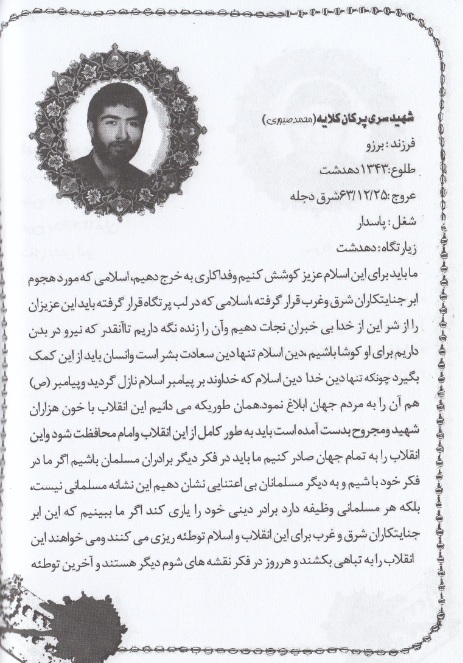 شهید سری پرکان کلایه (محمد صبوری)
فرزند : برزو
طلوع : ۱۳۴۳ دهدشت
عروج : ۶۳/۱۲/۲۵ شرق دجله
شغل : پاسدار
زیارتگاه : دهدشت
ما باید برای این اسلام عزیز کوشش کنیم وفداکاری به خرج دهیم، اسلامی که مورد هجوم
ابر جنایتکاران شرق وغرب قرار گرفته ،اسلامی که در لب پرتگاه قرار گرفته باید این عزیزان
را از شر این از خدا بی خبران نجات دهیم وآن را زنده نگه داریم تاآنقدر که نیرو در بدن
داریم برای او کوشا باشیم ،دین اسلام تنها دین سعادت بشر است وانسان باید از این کمک
بگیرد چونکه تنها دین خدا دین اسلام که خداوند بر پیامبر اسلام نازل گردید وپیامبر (ص)
هم آن را به مردم جهان ابلاغ نمود.همان طوریکه می دانیم این انقلاب با خون هزاران
شهید ومجروح بدست آمده است باید به طور کامل از این انقلاب وامام محافظت شود واین
انقلاب را به تمام جهان صادر کنیم ما باید در فکر دیگر برادران مسلمان باشیم اگر ما در
فکر خود با شیم و به دیگر مسلمانان بی اعتنایی نشان دهیم این نشانه مسلمانی نیست،
بلکه هر مسلمانی وظیفه دارد برادر دینی خود را یاری کند اگر ما ببینیم که این ابر
جنایتکاران شرق و غرب برای این انقلاب و اسلام توطئه ریزی می کنند ومی خواهند این
انقلاب را به تباهی بکشند و هرروز در فکر نقشه های شوم دیگر هستند و آخرین توطئه